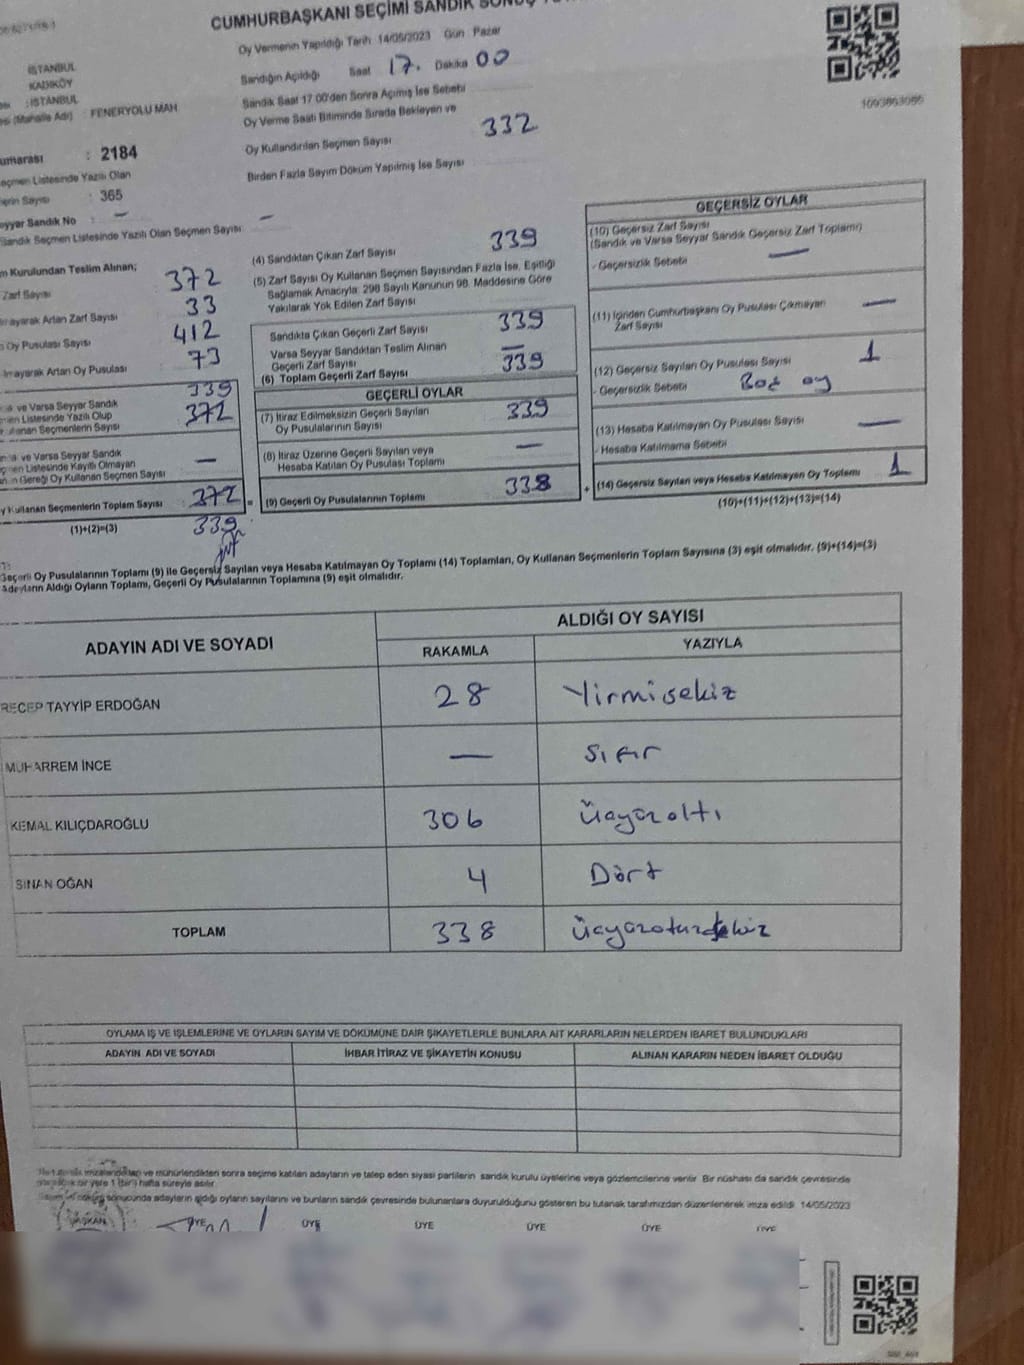 CUMHURBAŞKANI SEÇİMİ SANDIK
Oy Vermenin Yapıldığı Tarih 14/05/2023 Gün Pazar
Sandığın Açıldığı Saat 17. Dakika 00
Sandık Saat 17 00'den Sonra Açılmış İse Sebebi
Oy Verme Saati Bitiminde Sırada Bekleyen ve
Oy Kullandırılan Seçmen Sayısı 332
Birden Fazla Sayım Döküm Yapılmış İse Sayısı
1093863086
İSTANBUL
KADIKÖY
: İSTANBUL
(Mahalle Adı) : FENERYOLU MAH
umarası : 2184
eçmen Listesinde Yazılı Olan
Sayısı : 365
eyyar Sandık No : —
Sandık Seçmen Listesinde Yazılı Olan Seçmen Sayısı —
m Kurulundan Teslim Alınan;
Zarf Sayısı 372
mayarak Artan Zarf Sayısı 33
Oy Pusulası Sayısı 412
lmayarak Artan Oy Pusulası 73
339
ve Varsa Seyyar Sandık
men Listesinde Yazılı Olup 372
ullanan Seçmenlerin Sayısı
ve Varsa Seyyar Sandık
çmen Listesinde Kayıtlı Olmayan —
Gereği Oy Kullanan Seçmen Sayısı
y Kullanan Seçmenlerin Toplam Sayısı 372 =
(1)+(2)=(3) 339
(4) Sandıktan Çıkan Zarf Sayısı 339
(5) Zarf Sayısı Oy Kullanan Seçmen Sayısından Fazla İse, Eşitliği
Sağlamak Amacıyla; 298 Sayılı Kanunun 98. Maddesine Göre
Yakılarak Yok Edilen Zarf Sayısı
Sandıkta Çıkan Geçerli Zarf Sayısı 339
Varsa Seyyar Sandıktan Teslim Alınan
Geçerli Zarf Sayısı —
(6) Toplam Geçerli Zarf Sayısı 339
GEÇERLİ OYLAR
(7) İtiraz Edilmeksizin Geçerli Sayılan
Oy Pusulalarının Sayısı 339
(8) İtiraz Üzerine Geçerli Sayılan veya
Hesaba Katılan Oy Pusulası Toplamı —
(9) Geçerli Oy Pusulalarının Toplamı 338 +
GEÇERSİZ OYLAR
(10) Geçersiz Zarf Sayısı
(Sandık ve Varsa Seyyar Sandık Geçersiz Zarf Toplamı)
- Geçersizlik Sebebi —
(11) İçinden Cumhurbaşkanı Oy Pusulası Çıkmayan
Zarf Sayısı —
(12) Geçersiz Sayılan Oy Pusulası Sayısı 1
- Geçersizlik Sebebi Boş oy
(13) Hesaba Katılmayan Oy Pusulası Sayısı —
- Hesaba Katılmama Sebebi
(14) Geçersiz Sayılan veya Hesaba Katılmayan Oy Toplamı 1
(10)+(11)+(12)+(13)=(14)
Geçerli Oy Pusulalarının Toplamı (9) ile Geçersiz Sayılan veya Hesaba Katılmayan Oy Toplamı (14) Toplamları, Oy Kullanan Seçmenlerin Toplam Sayısına (3) eşit olmalıdır. (9)+(14)=(3)
Adayların Aldığı Oyların Toplamı, Geçerli Oy Pusulalarının Toplamına (9) eşit olmalıdır.
ADAYIN ADI VE SOYADI
ALDIĞI OY SAYISI
RAKAMLA YAZIYLA
RECEP TAYYİP ERDOĞAN 28 Yirmisekiz
MUHARREM İNCE — Sıfır
KEMAL KILIÇDAROĞLU 306 Üçyüzaltı
SİNAN OĞAN 4 Dört
TOPLAM 338 Üçyüzotuzsekiz
OYLAMA İŞ VE İŞLEMLERİNE VE OYLARIN SAYIM VE DÖKÜMÜNE DAİR ŞİKAYETLERLE BUNLARA AİT KARARLARIN NELERDEN İBARET BULUNDUKLARI
ADAYIN ADI VE SOYADI İHBAR İTİRAZ VE ŞİKAYETİN KONUSU ALINAN KARARIN NEDEN İBARET OLDUĞU
imzalandıktan ve mühürlendikten sonra seçime katılan adayların ve talep eden siyasi partilerin sandık kurulu üyelerine veya gözlemcilerine verilir. Bir nüshası da sandık çevresinde
bir yere 1 (bir) hafta süreyle asılır.
sonucunda adayların aldığı oyların sayılarını ve bunların sandık çevresinde bulunanlara duyurulduğunu gösteren bu tutanak tarafımızdan düzenlenerek imza edildi 14/05/2023
BAŞKAN ÜYE ÜYE ÜYE ÜYE ÜYE ÜYE